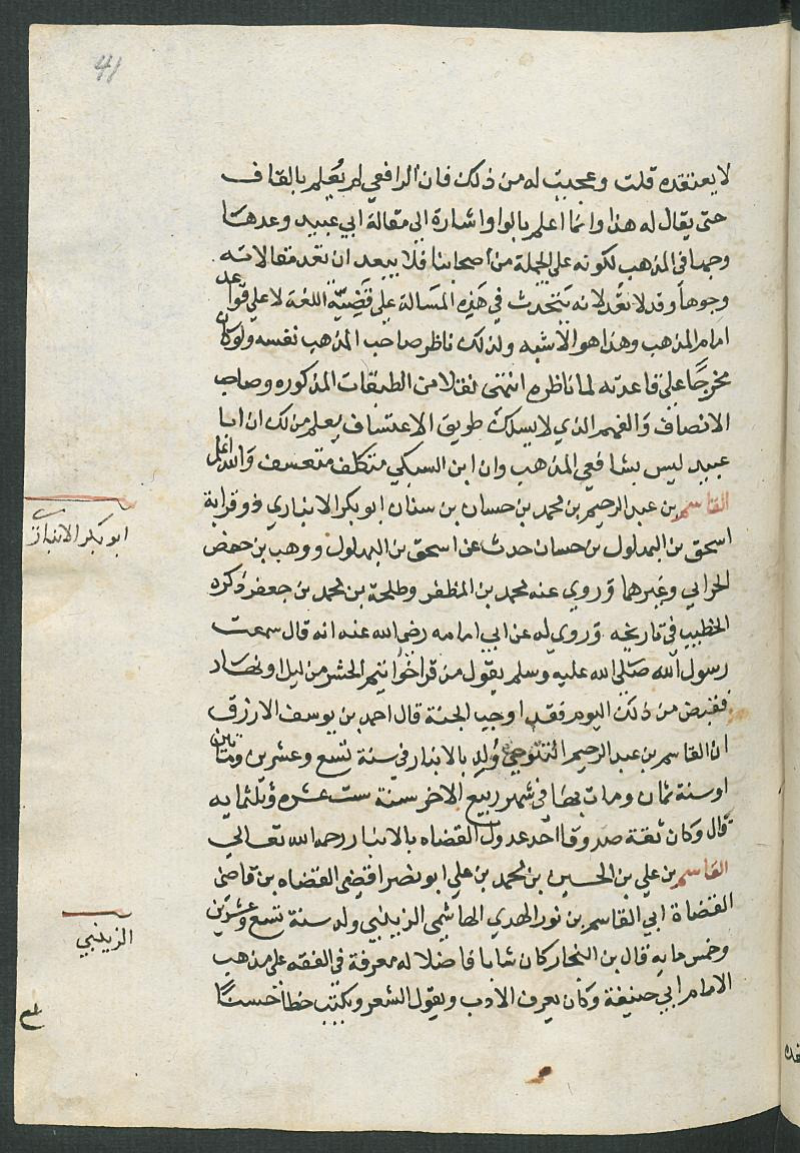 41
لا يعتقده قلت وعجيب له من ذلك فان الرافعي لم يُعلم بالقاف
حتى يقال له هذا وانما اعلم بالواو اشارة الى مقالة ابي عبيد وعدها
وجها في المذهب لكونه على الجملة من اصحابنا فلا يبعد ان تعد مقالاته
وجوها وقد لا تعد لانه يتحدث في هذه المسالة على قضية اللغة لا على قواعد
امام المذهب وهذا هو الاشبه ولذلك ناظر صاحب المذهب نفسه ولو كان
مخرجا على قاعدته لما ناظره انتهى نقلا من الطبقات المذكوره وصاحب
الانصاف والفهم الذي لا يسلك طريق الاعتساف يعلم من لك ان ابا
عبيد ليس بشافعي المذهب وان ابن السبكي متكلف متعسف والله اعلم
القاسم بن عبد الرحيم بن محمد بن حسان بن سنان ابو بكر الانباري ذو قرابة
اسحق بن البهلول بن حسان حدث عن اسحق بن البهلول ووهب بن حفص
الحراني وغيرهما وروي عنه محمد بن المظفر وطلحة بن محمد بن جعفر ذكره
الخطيب في تاريخه وروي له عن ابي امامه رضي الله عنه انه قال سمعت
رسول الله صلى الله عليه وسلم يقول من قرا خواتيم الحشر من ليل او نهار
فقبض من ذلك اليوم فقد اوجب الجنة قال احمد بن يوسف الازرق
ان القاسم بن عبد الرحيم التنوخي وُلد بالانبار في سنة تسع وعشرين ومايتين
او سنة ثمان ومات بها في شهر ربيع الاخر سنة ست عشره وثلثمايه
قال وكان ثقة صدوقا احد عدول القضاه بالانبار رحمه الله تعالى
القاسم بن علي بن الحسين بن محمد بن علي ابو نصر اقضى القضاه بن قاضي
القضاة ابي القاسم بن نور الهدي الهاشمي الزينبي ولد سنة تسع وعشرين
وخمس مايه قال بن النجار كان شابا فاضلا له معرفة في الفقه على مذهب
الامام ابي حنيفة وكان يعرف الادب ويقول الشعر ويكتب خطا حسنا
ابو بكر الانباري
الزينبي